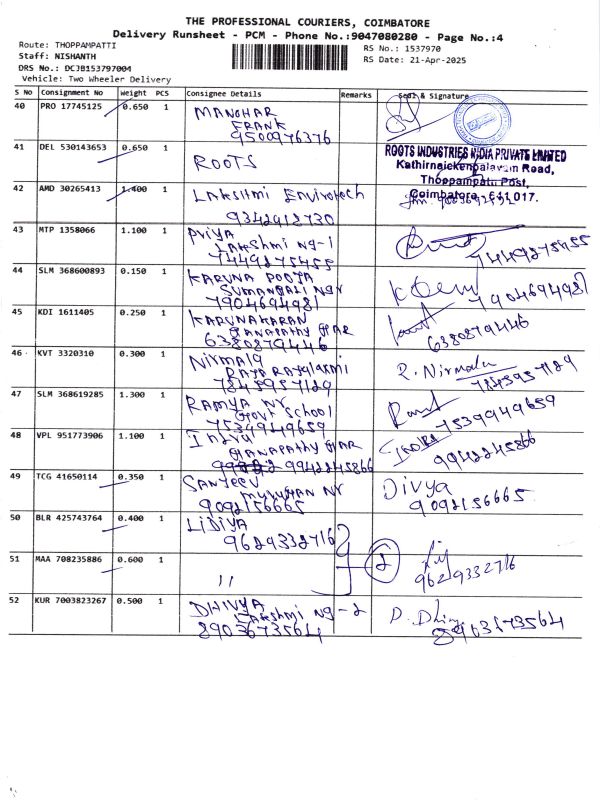 THE PROFESSIONAL COURIERS, COIMBATORE
Delivery Runsheet - PCM - Phone No.:9047080280 - Page No.:4
Route: THOPPAMPATTI
RS No.: 1537970
Staff: NISHANTH
RS Date: 21-Apr-2025
DRS No.: DCJB153797004
Vehicle: Two Wheeler Delivery
S No Consignment No Weight PCS Consignee Details Remarks Seal & Signature
40 PRO 17745125 0.650 1 MANOHAR
FRANK
9500976376
41 DEL 530143653 0.650 1 ROOTS
ROOTS INDUSTRIES INDIA PRIVATE LIMITED
Kathirnaickenpalayam Road,
Thoppampatti Post,
Coimbatore - 641 017.
42 AMD 30265413 1.400 1 Lakshmi Envirotech
9342912730
43 MTP 1358066 1.100 1 Priya
Lakshmi ng-1
7449275455 7449275455
44 SLM 368600893 0.150 1 KARUNA POOJA
SUMANGALI NGR
7904694981 7904694981
45 KDI 1611405 0.250 1 KARUNAKARAN
GANAPATHY GAR
6380879446 6380879446
46 KVT 3320310 0.300 1 Nirmala R. Nirmala
Rajarayalaxmi
7845957129 7845957129
47 SLM 368619285 1.300 1 RAMYA Nr
Govt School
7539949659 7539949659
48 VPL 951773906 1.100 1 Indra INDRA
GANAPATHY GAR
9942245866 9942245866
49 TCG 41650114 0.350 1 SANJEEV Divya
MURUGAN Nr
9092156665 9092156665
50 BLR 425743764 0.400 1 LIDIYA
9629332716
2
51 MAA 708235886 0.600 1 "
9629332716
52 KUR 7003823267 0.500 1 DHIVYA
Lakshmi ng-2
8903673564